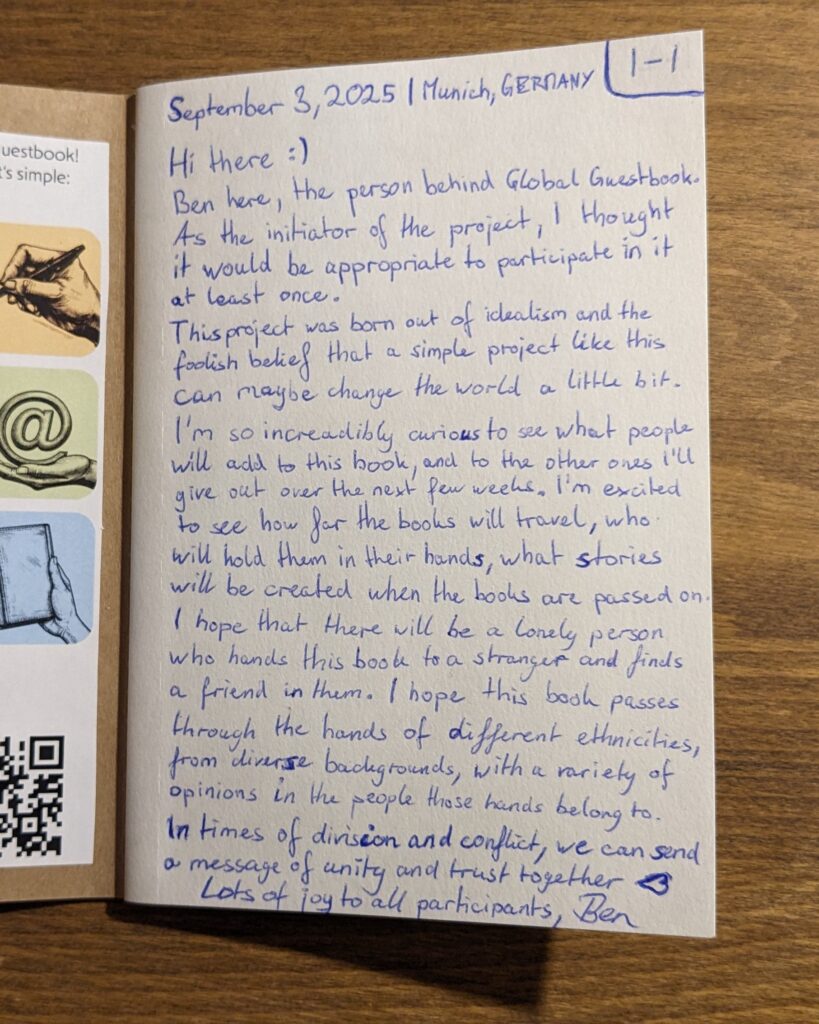 uestbook!
t's simple:
@
1-1
September 3, 2025 | Munich, GERMANY
Hi there :)
Ben here, the person behind Global Guestbook.
As the initiator of the project, I thought
it would be appropriate to participate in it
at least once.
This project was born out of idealism and the
foolish belief that a simple project like this
can maybe change the world a little bit.
I'm so increadibly curious to see what people
will add to this book, and to the other ones I'll
give out over the next few weeks. I'm excited
to see how far the books will travel, who
will hold them in their hands, what stories
will be created when the books are passed on.
I hope that there will be a lonely person
who hands this book to a stranger and finds
a friend in them. I hope this book passes
through the hands of different ethnicities,
from diverse backgrounds, with a variety of
opinions in the people those hands belong to.
In times of division and conflict, we can send
a message of unity and trust together <3
Lots of joy to all participants, Ben